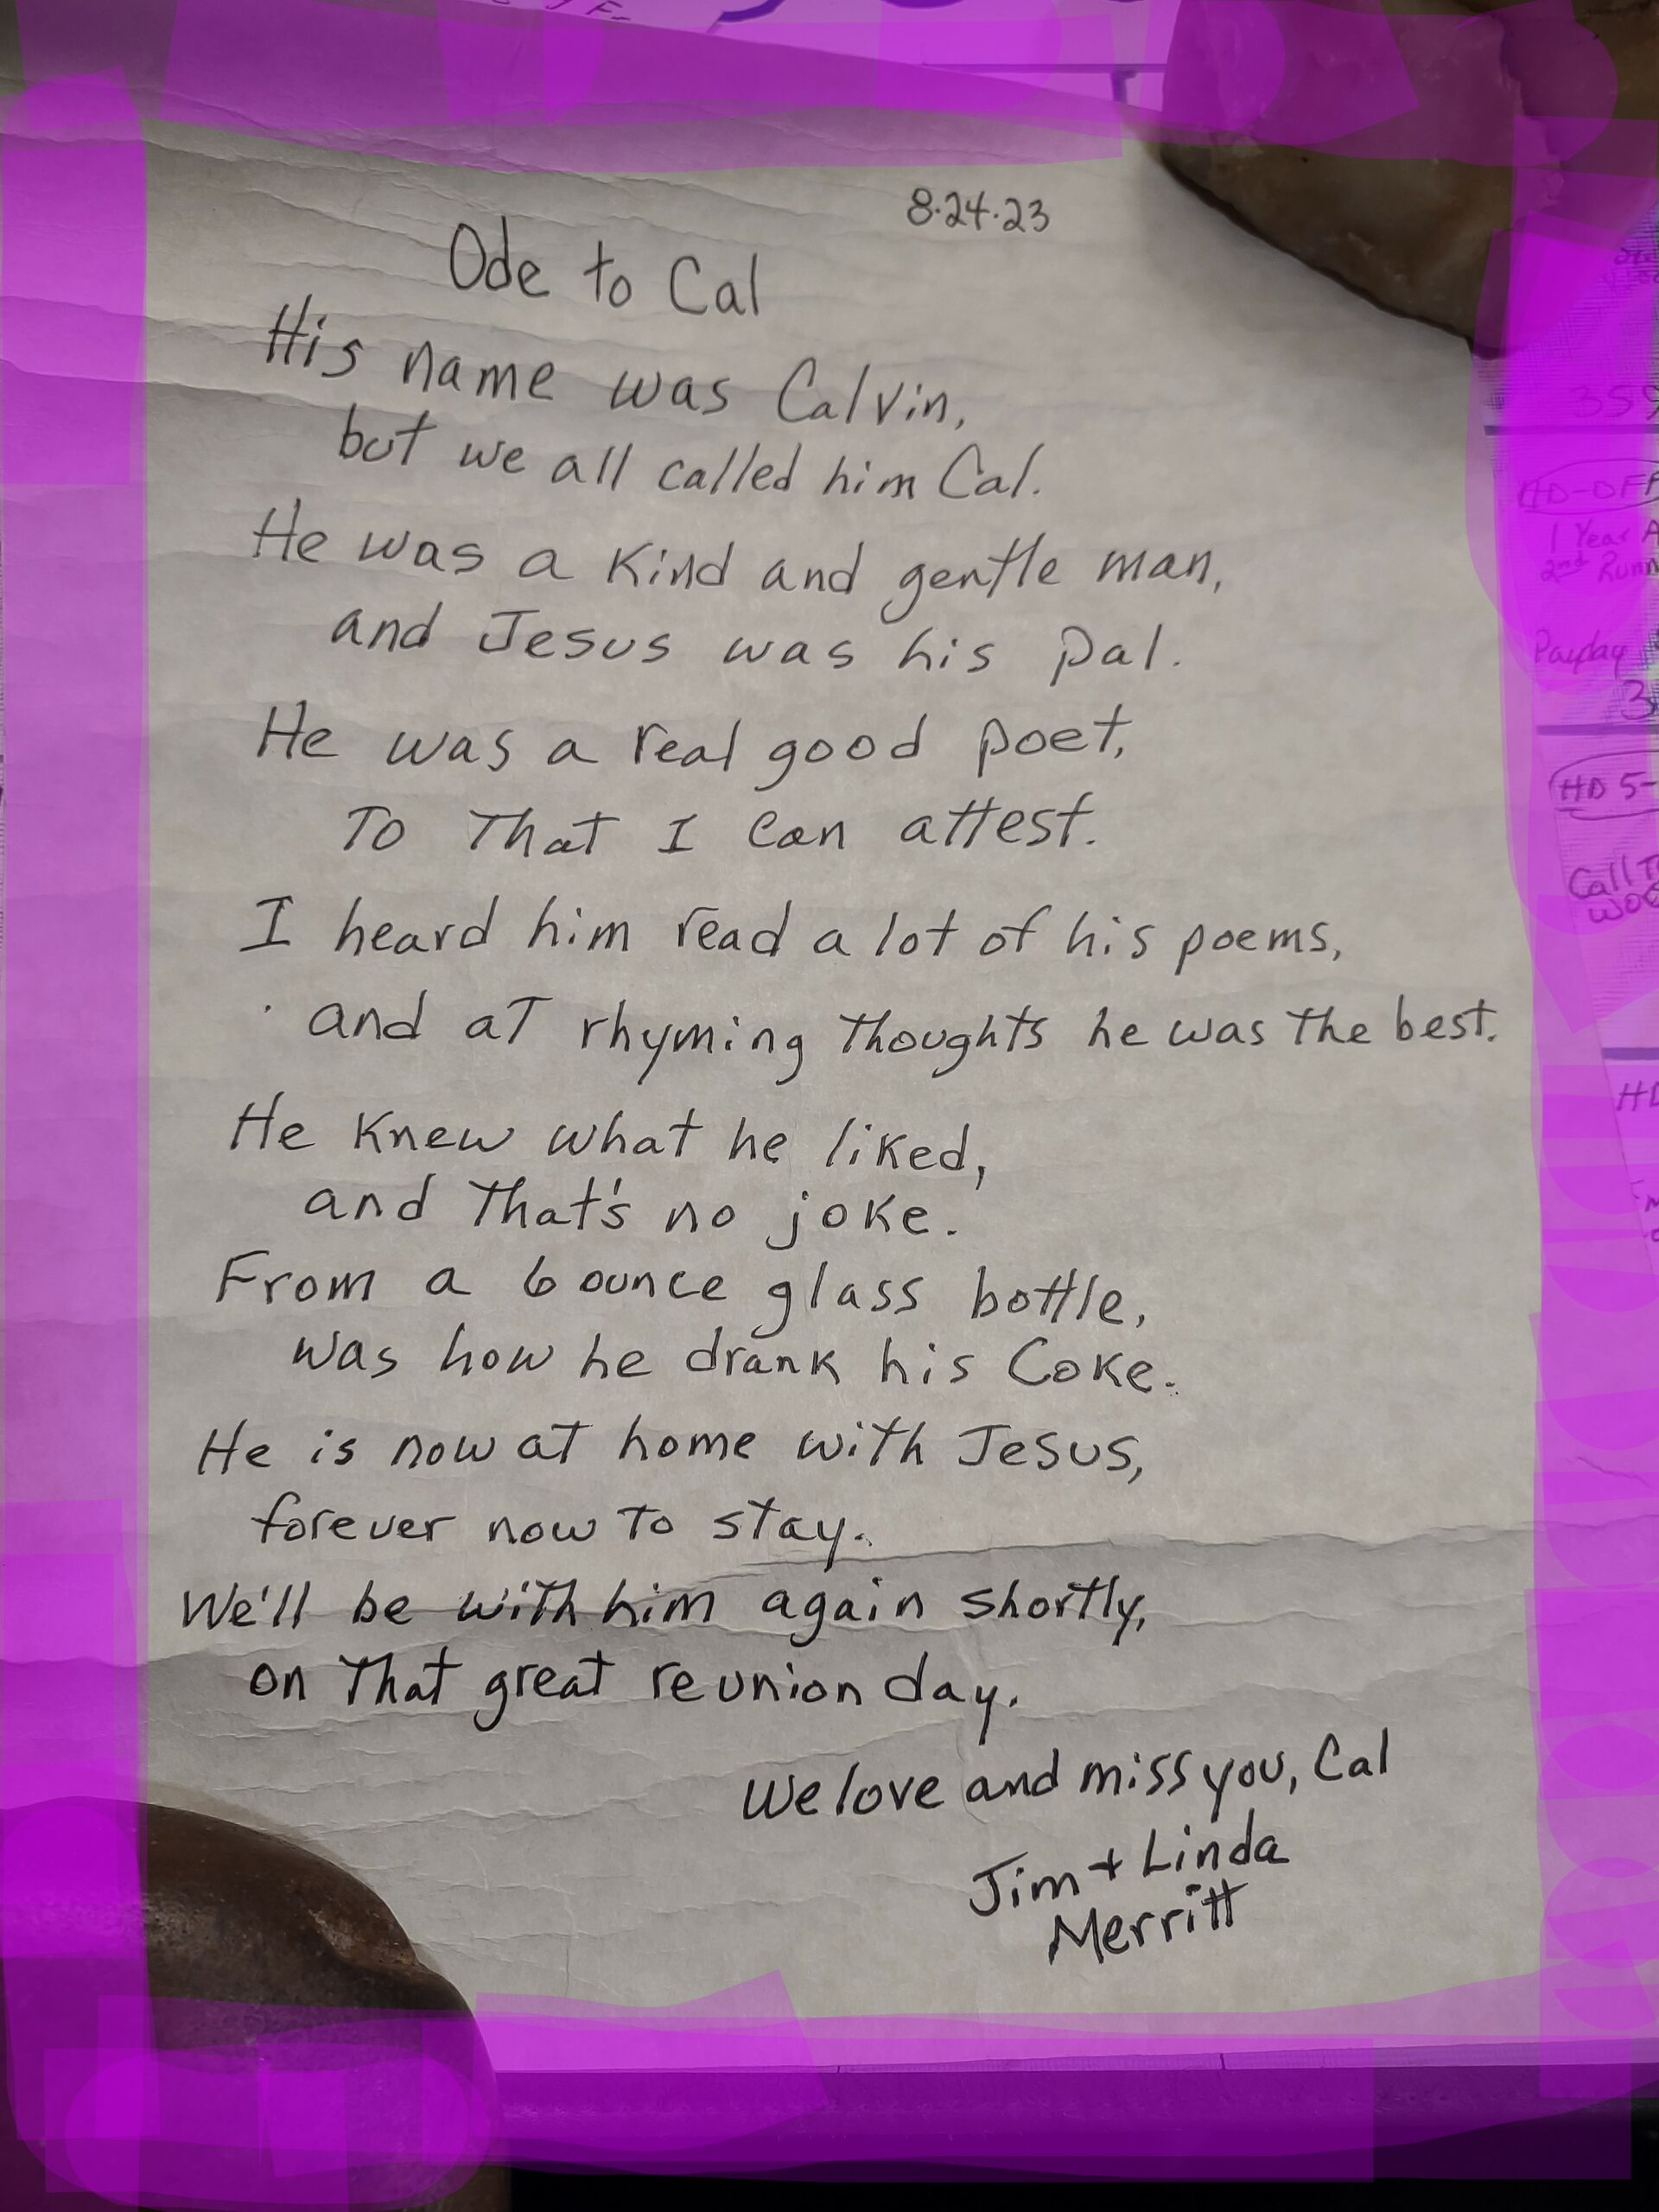 8.24.23
Ode to Cal
His name was Calvin,
but we all called him Cal.
He was a kind and gentle man,
and Jesus was his pal.
He was a real good poet,
To That I can attest.
I heard him read a lot of his poems,
and at rhyming thoughts he was the best.
He knew what he liked,
and that's no joke.
From a 6 ounce glass bottle,
was how he drank his Coke.
He is now at home with Jesus,
forever now to stay.
We'll be with him again shortly,
on that great reunion day.
We love and miss you, Cal
Jim + Linda
Merritt
359
HD-OFF
1 Year A
2nd Runn
Payday
3
HD 5-
Call T
woo
HD